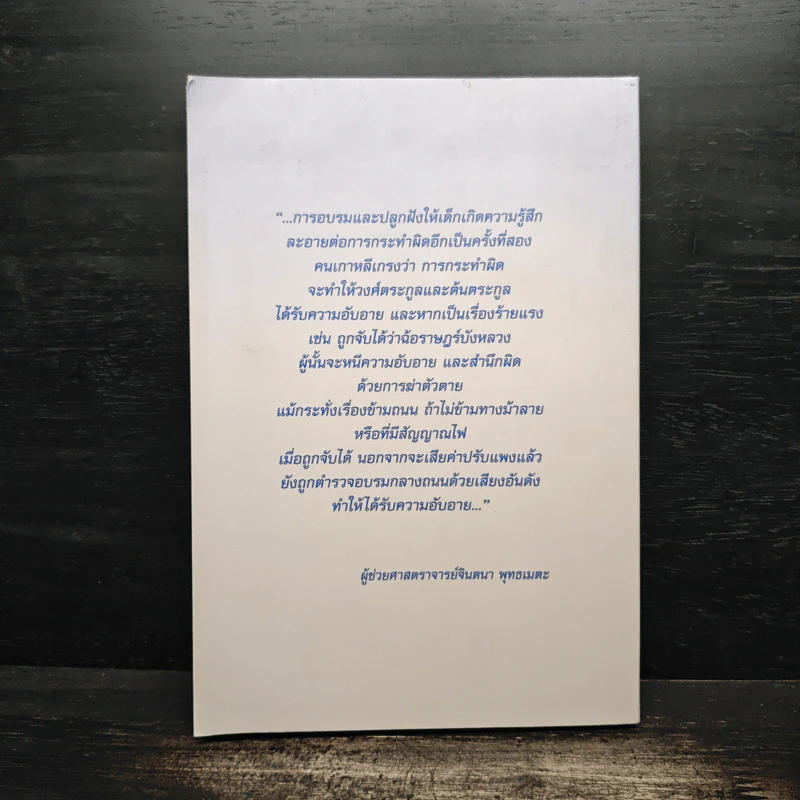 “...การอบรมและปลูกฝังให้เด็กเกิดความรู้สึก
ละอายต่อการกระทำผิดอีกเป็นครั้งที่สอง
คนเกาหลีเกรงว่า การกระทำผิด
จะทำให้วงศ์ตระกูลและต้นตระกูล
ได้รับความอับอาย และหากเป็นเรื่องร้ายแรง
เช่น ถูกจับได้ว่าฉ้อราษฎร์บังหลวง
ผู้นั้นจะหนีความอับอาย และสำนึกผิด
ด้วยการฆ่าตัวตาย
แม้กระทั่งเรื่องข้ามถนน ถ้าไม่ข้ามทางม้าลาย
หรือที่มีสัญญาณไฟ
เมื่อถูกจับได้ นอกจากจะเสียค่าปรับแพงแล้ว
ยังถูกตำรวจอบรมกลางถนนด้วยเสียงอันดัง
ทำให้ได้รับความอับอาย...”
ผู้ช่วยศาสตราจารย์จินตนา พุทธเมตะ